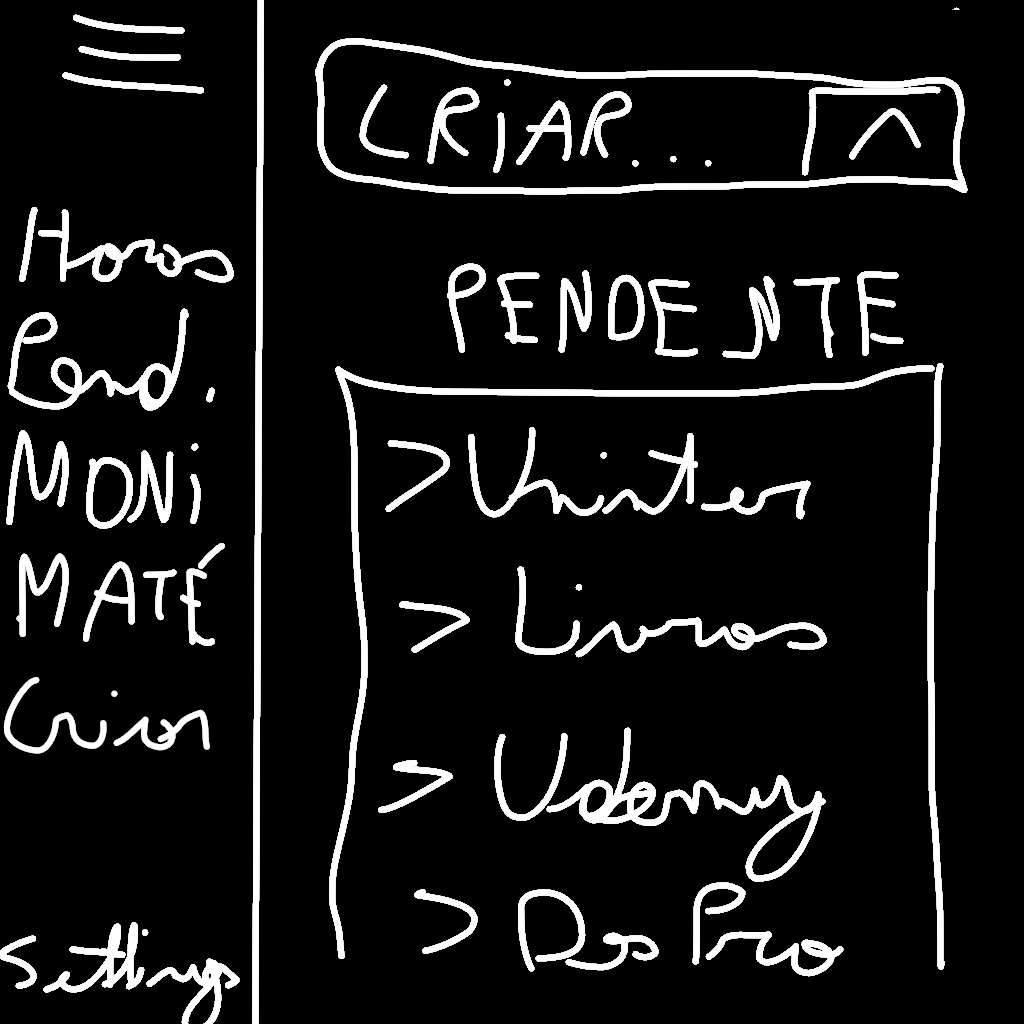 Horas
Pend.
MONi
MATÉ
Criar
Settings
CRiAR...
PENDENTE
> Uninter
> Livros
> Udemy
> DsPro